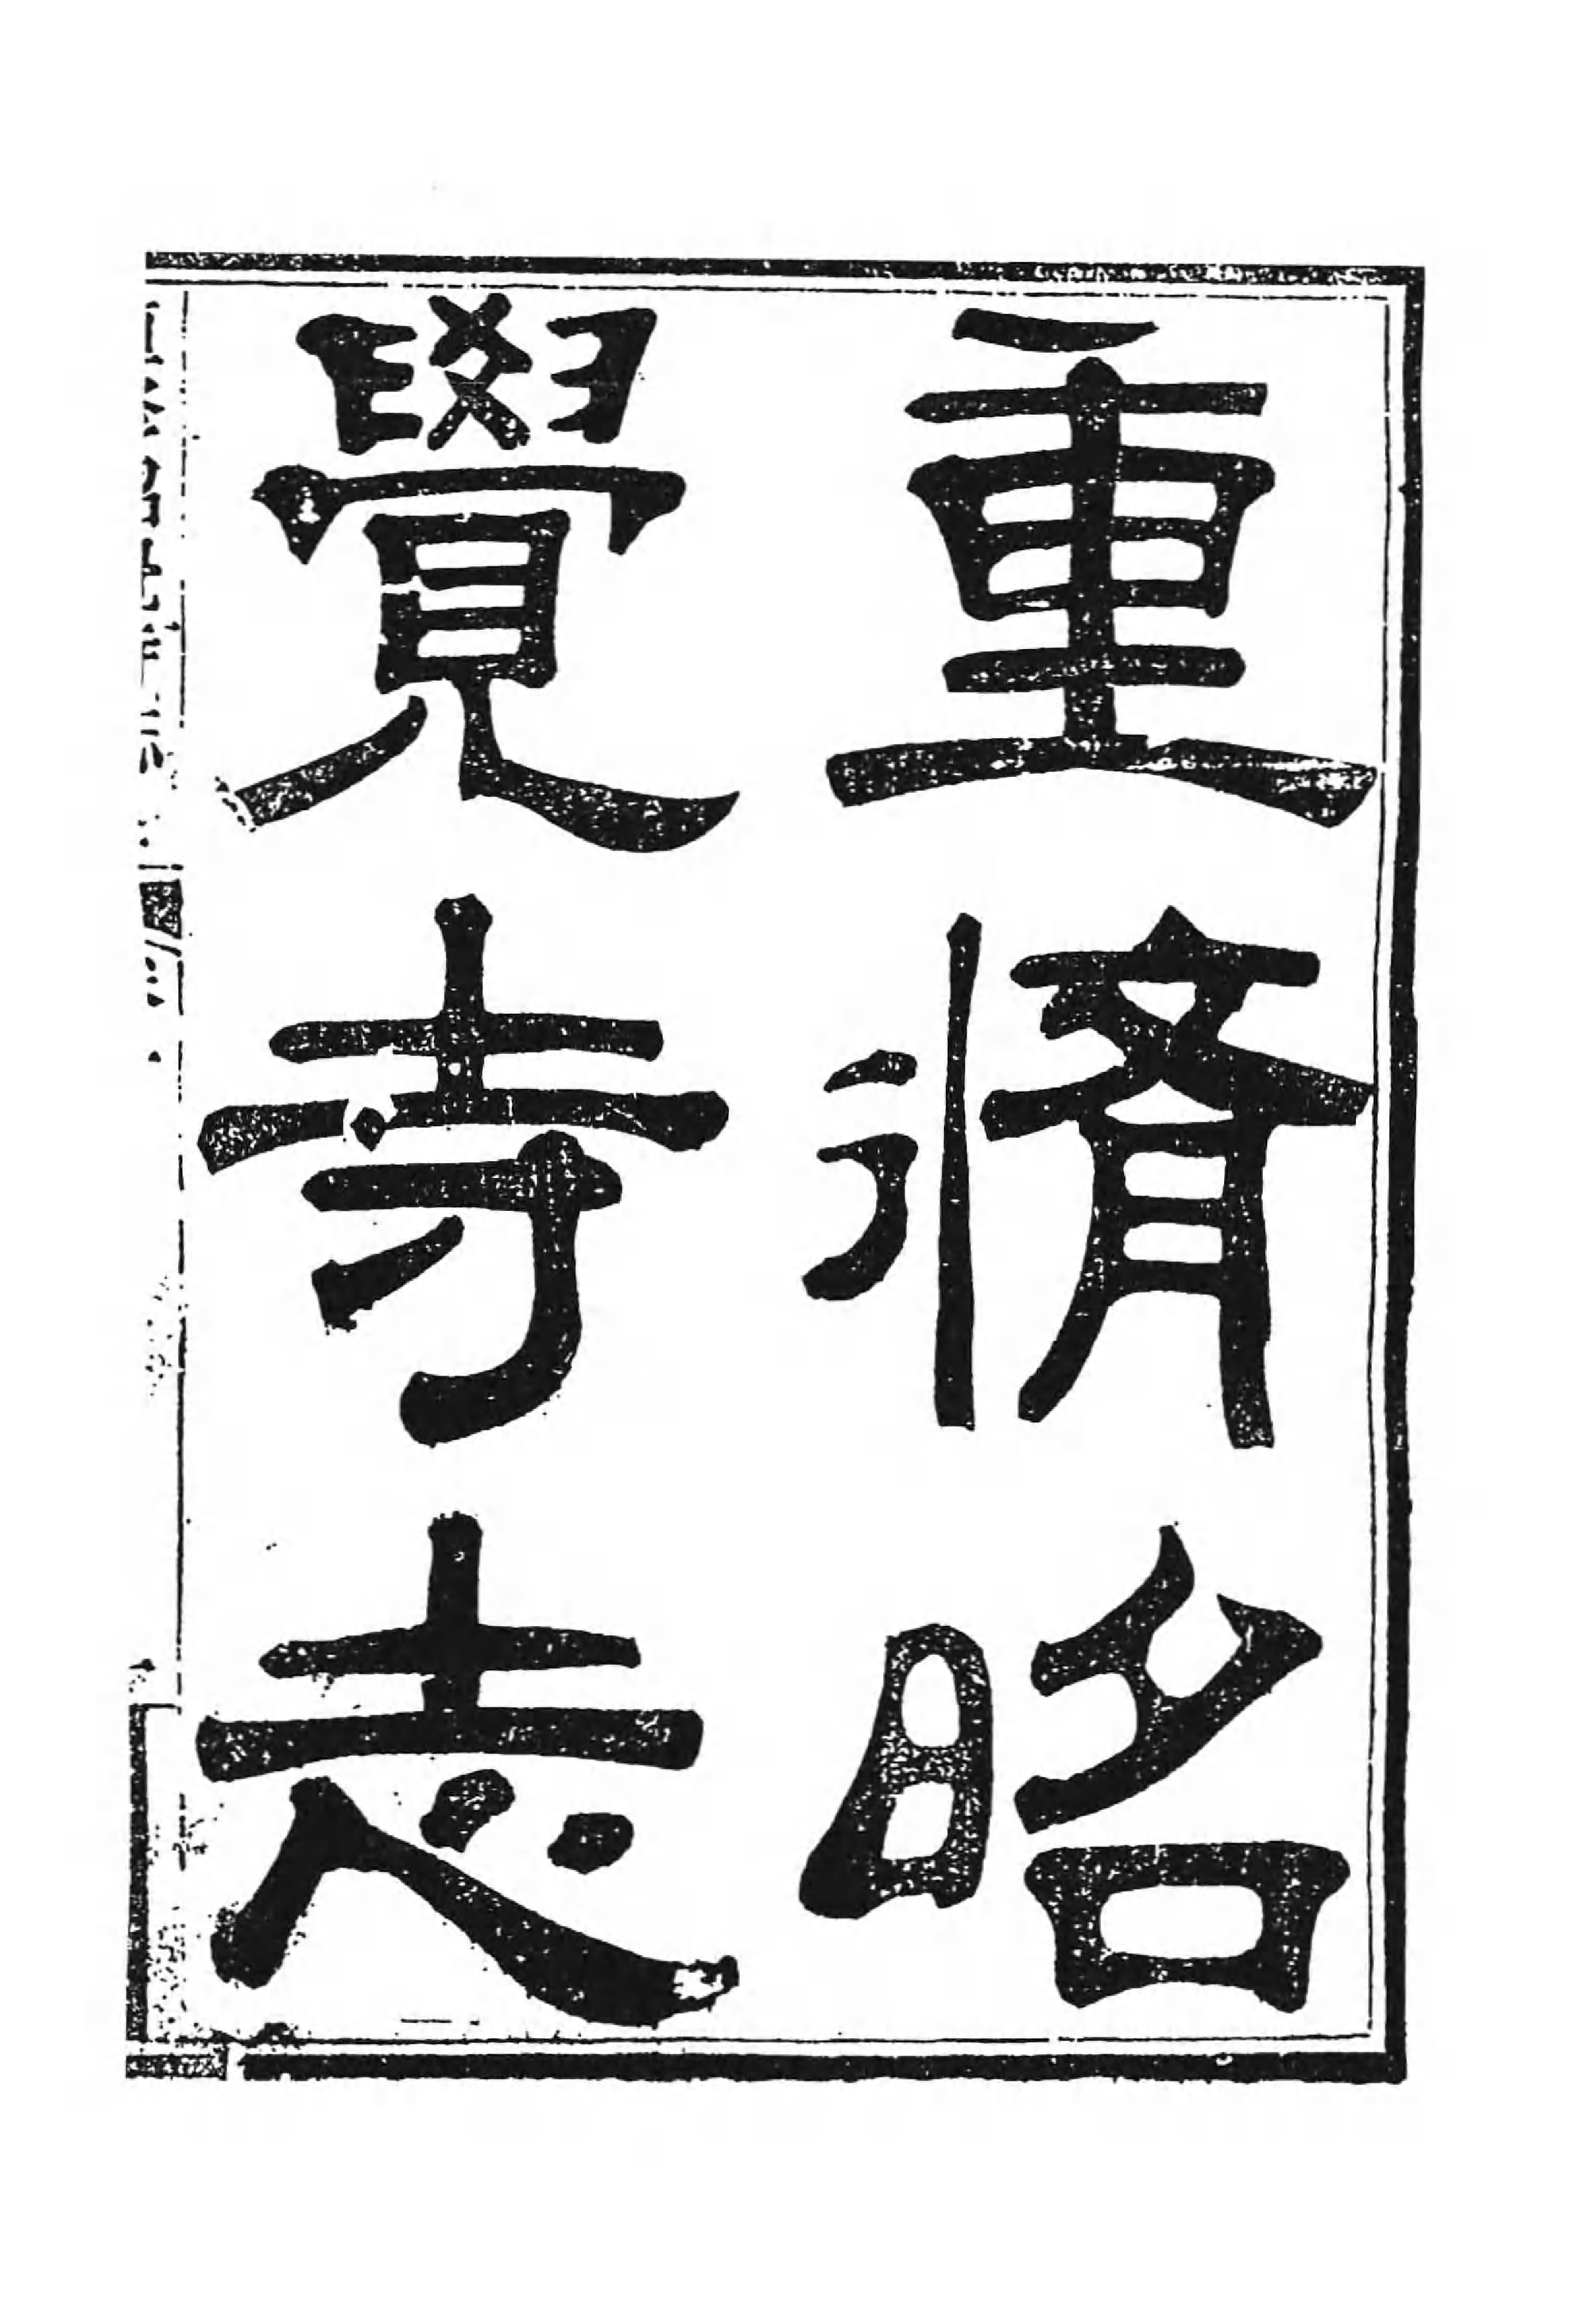 重脩昭
覺寺志